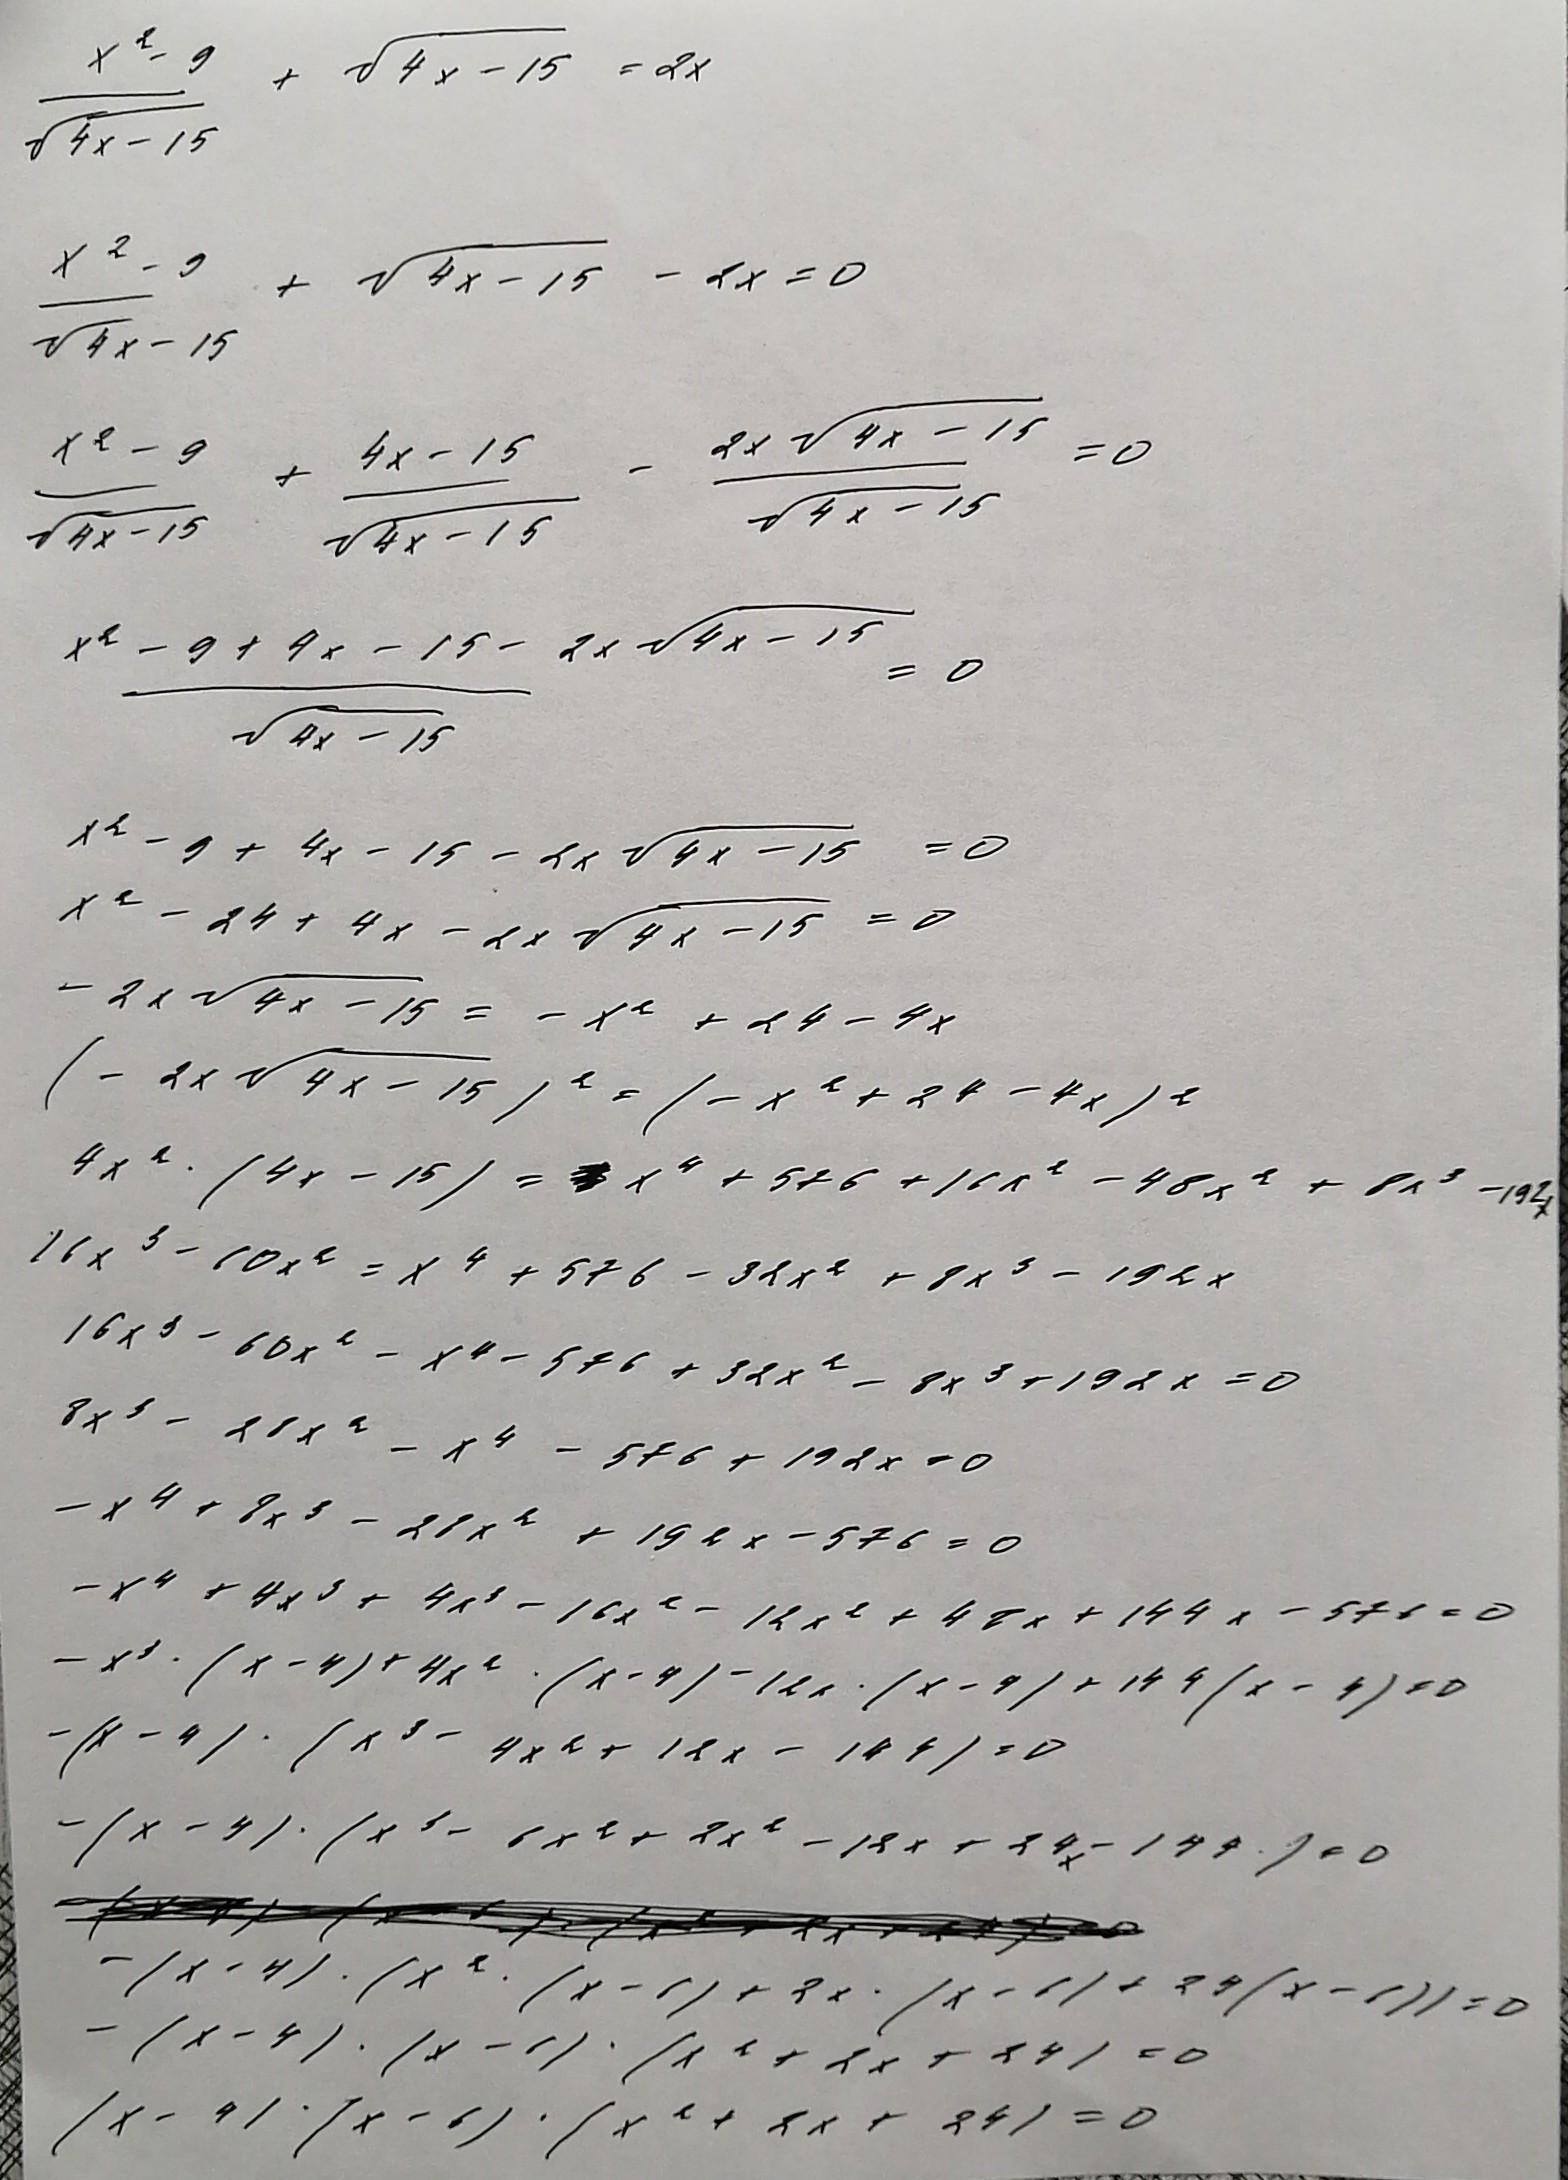 (x² - 9)/√(4x - 15) + √(4x - 15) = 2x
(x² - 9)/√(4x - 15) + √(4x - 15) - 2x = 0
(x² - 9)/√(4x - 15) + (4x - 15)/√(4x - 15) - (2x√(4x - 15))/√(4x - 15) = 0
(x² - 9 + 4x - 15 - 2x√(4x - 15))/√(4x - 15) = 0
x² - 9 + 4x - 15 - 2x√(4x - 15) = 0
x² - 24 + 4x - 2x√(4x - 15) = 0
- 2x√(4x - 15) = - x² + 24 - 4x
(- 2x√(4x - 15))² = (- x² + 24 - 4x)²
4x² · (4x - 15) = x⁴ + 576 + 16x² - 48x² + 8x³ - 192x
16x³ - 60x² = x⁴ + 576 - 32x² + 8x³ - 192x
16x³ - 60x² - x⁴ - 576 + 32x² - 8x³ + 192x = 0
8x³ - 28x² - x⁴ - 576 + 192x = 0
- x⁴ + 8x³ - 28x² + 192x - 576 = 0
- x⁴ + 4x³ + 4x³ - 16x² - 12x² + 48x + 144x - 576 = 0
- x³ · (x - 4) + 4x² · (x - 4) - 12x · (x - 4) + 144(x - 4) = 0
- (x - 4) · (x³ - 4x² + 12x - 144) = 0
- (x - 4) · (x³ - 6x² + 2x² - 12x + 24x - 144) = 0
- (x - 4) · (x² · (x - 6) + 2x · (x - 6) + 24(x - 6)) = 0
- (x - 4) · (x - 6) · (x² + 2x + 24) = 0
(x - 4) · (x - 6) · (x² + 2x + 24) = 0